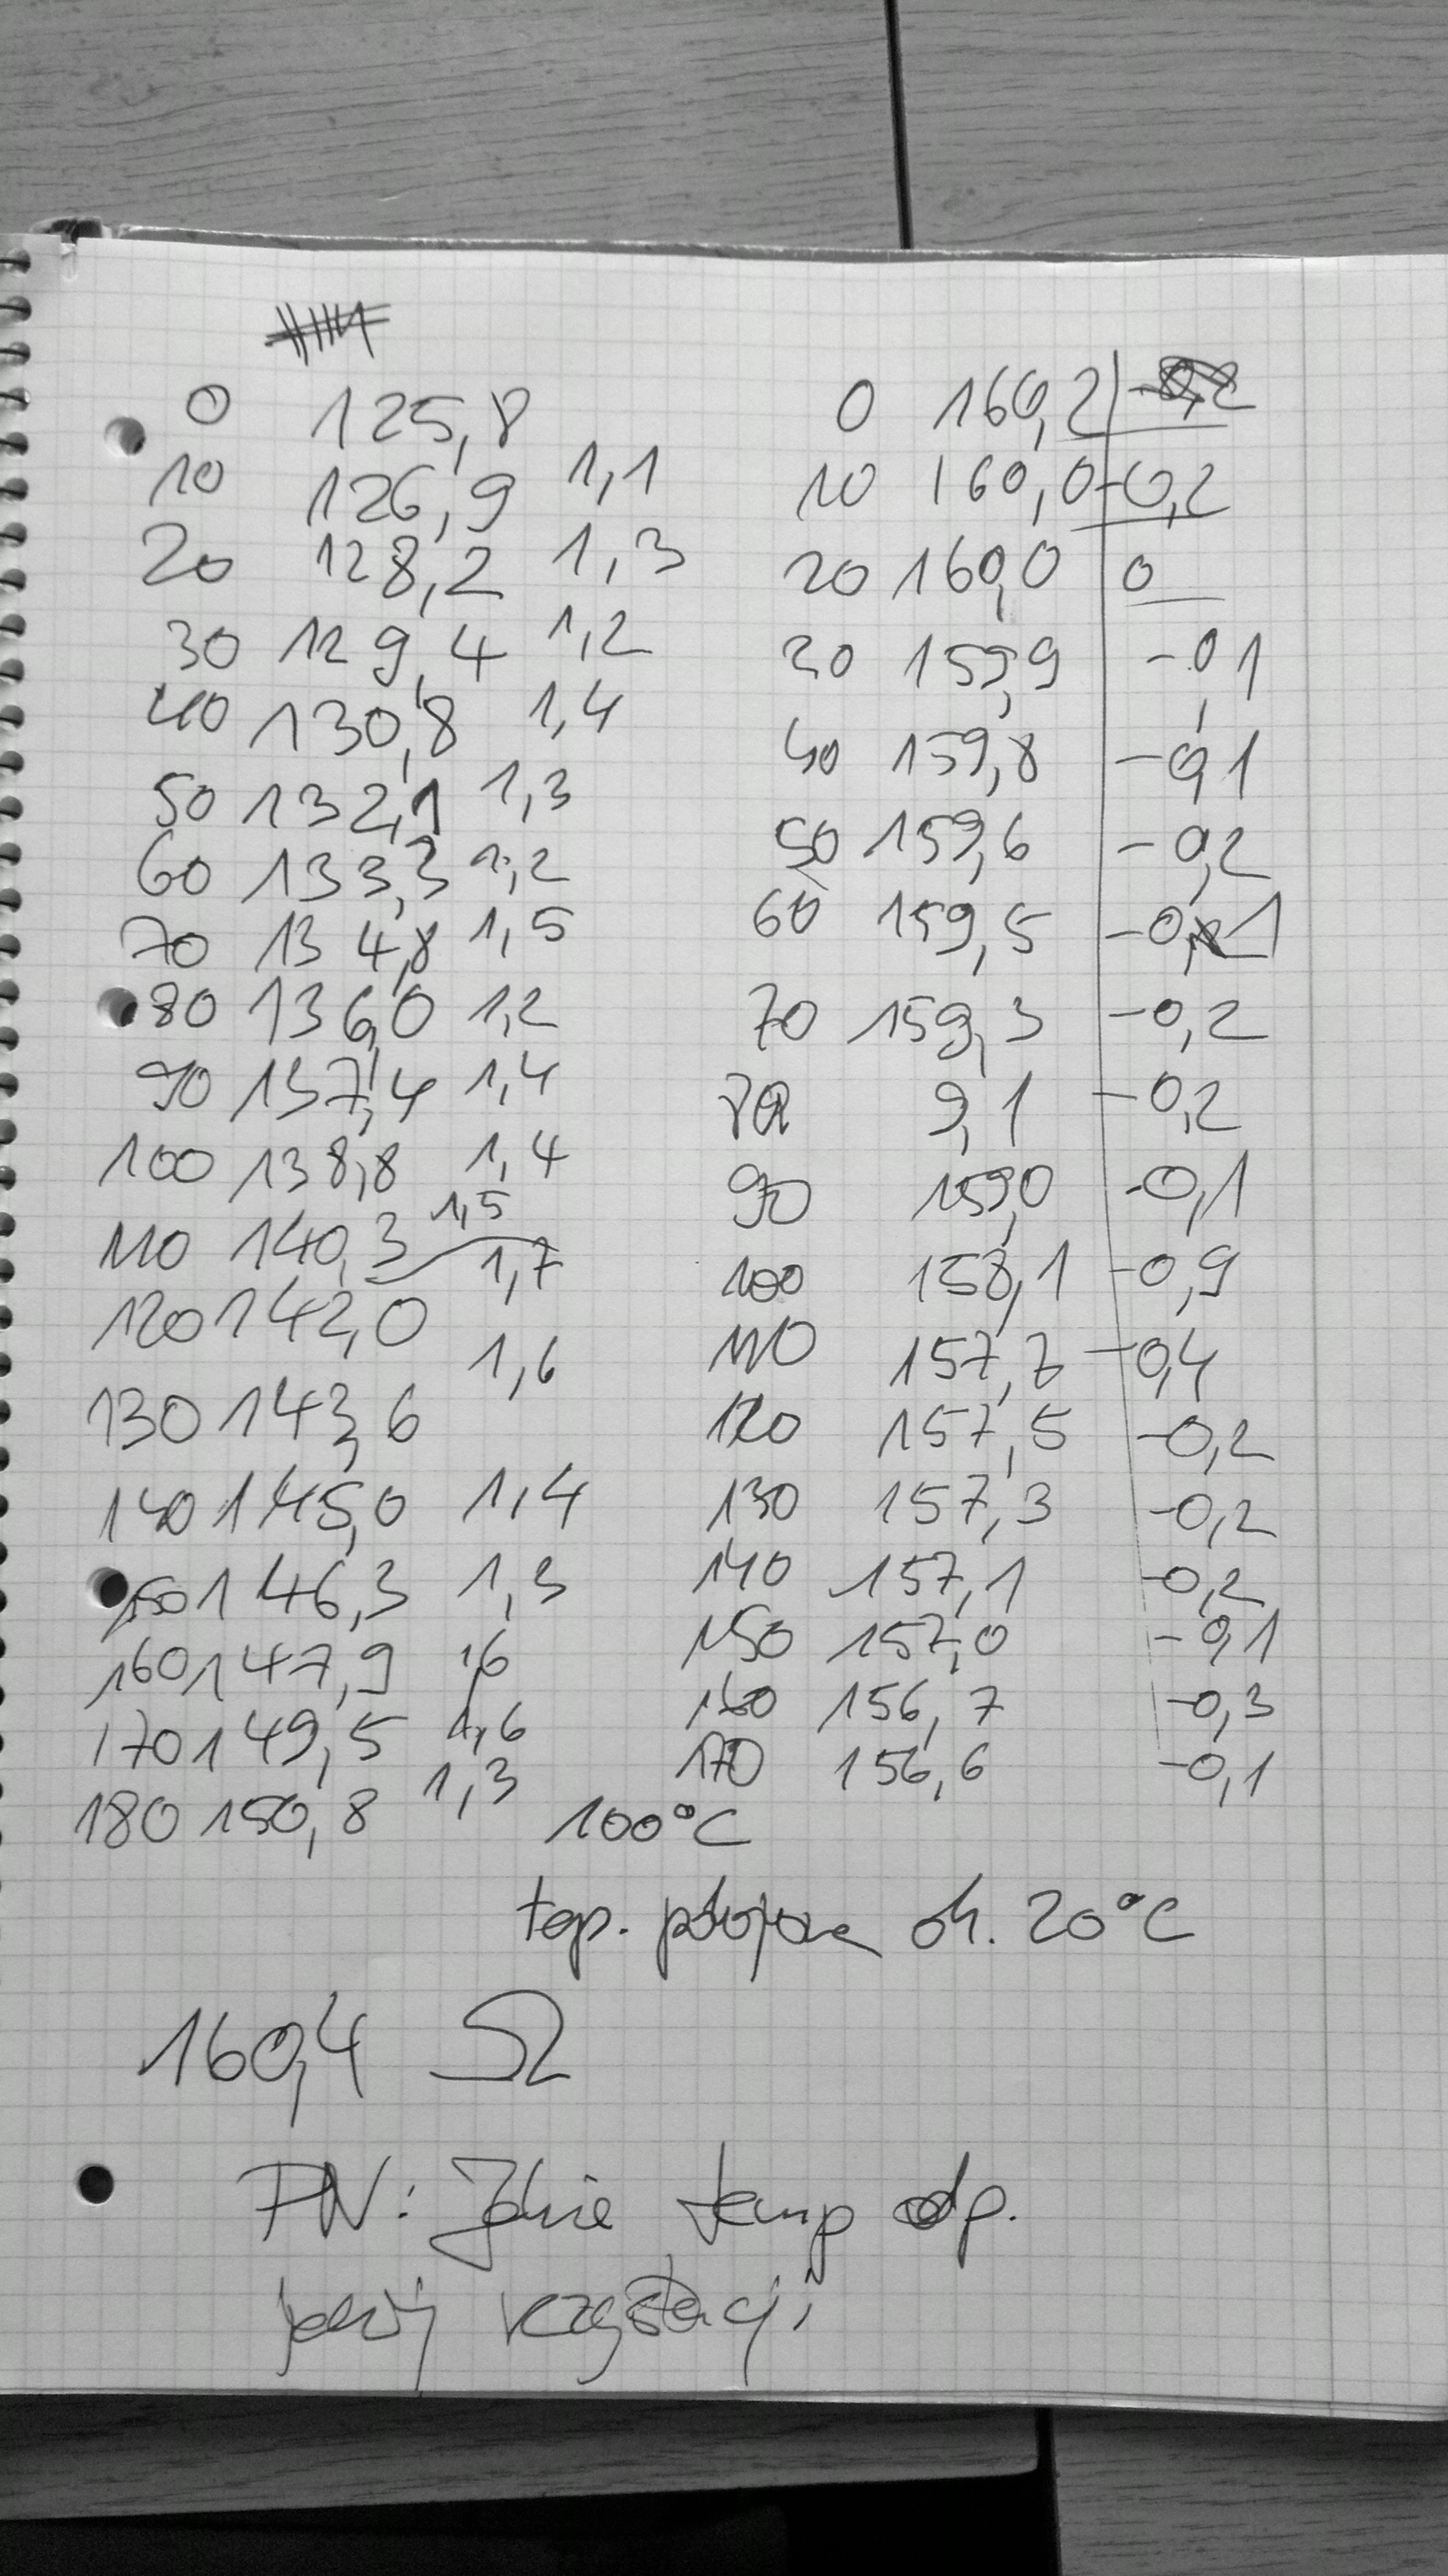 0 125,8
10 126,9 1,1
20 128,2 1,3
30 129,4 1,2
40 130,8 1,4
50 132,1 1,3
60 133,3 1,2
70 134,8 1,5
80 136,0 1,2
90 137,4 1,4
100 138,8 1,4
110 140,3 1,5
120 142,0 1,7
130 143,6 1,6
140 145,0 1,4
150 146,3 1,3
160 147,9 1,6
170 149,5 1,6
180 150,8 1,3
0 160,2
10 160,0 -0,2
20 160,0 0
30 159,9 -0,1
40 159,8 -0,1
50 159,6 -0,2
60 159,5 -0,1
70 159,3 -0,2
80 9,1 -0,2
90 159,0 -0,1
100 158,1 -0,9
110 157,7 -0,4
120 157,5 -0,2
130 157,3 -0,2
140 157,1 -0,2
150 157,0 -0,1
160 156,7 -0,3
170 156,6 -0,1
100°C
ok. 20°C
160,4 Ω
temp